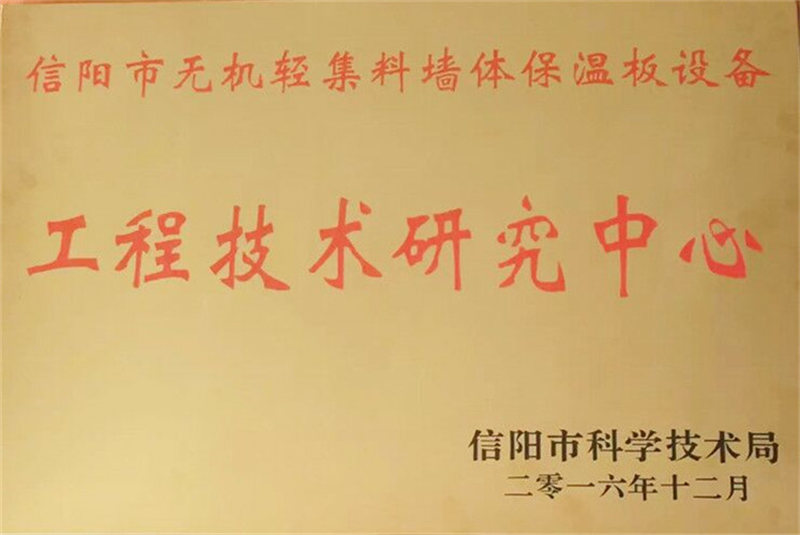 信阳市无机轻集料墙体保温板设备
工程技术研究中心
信阳市科学技术局
二零一六年十二月